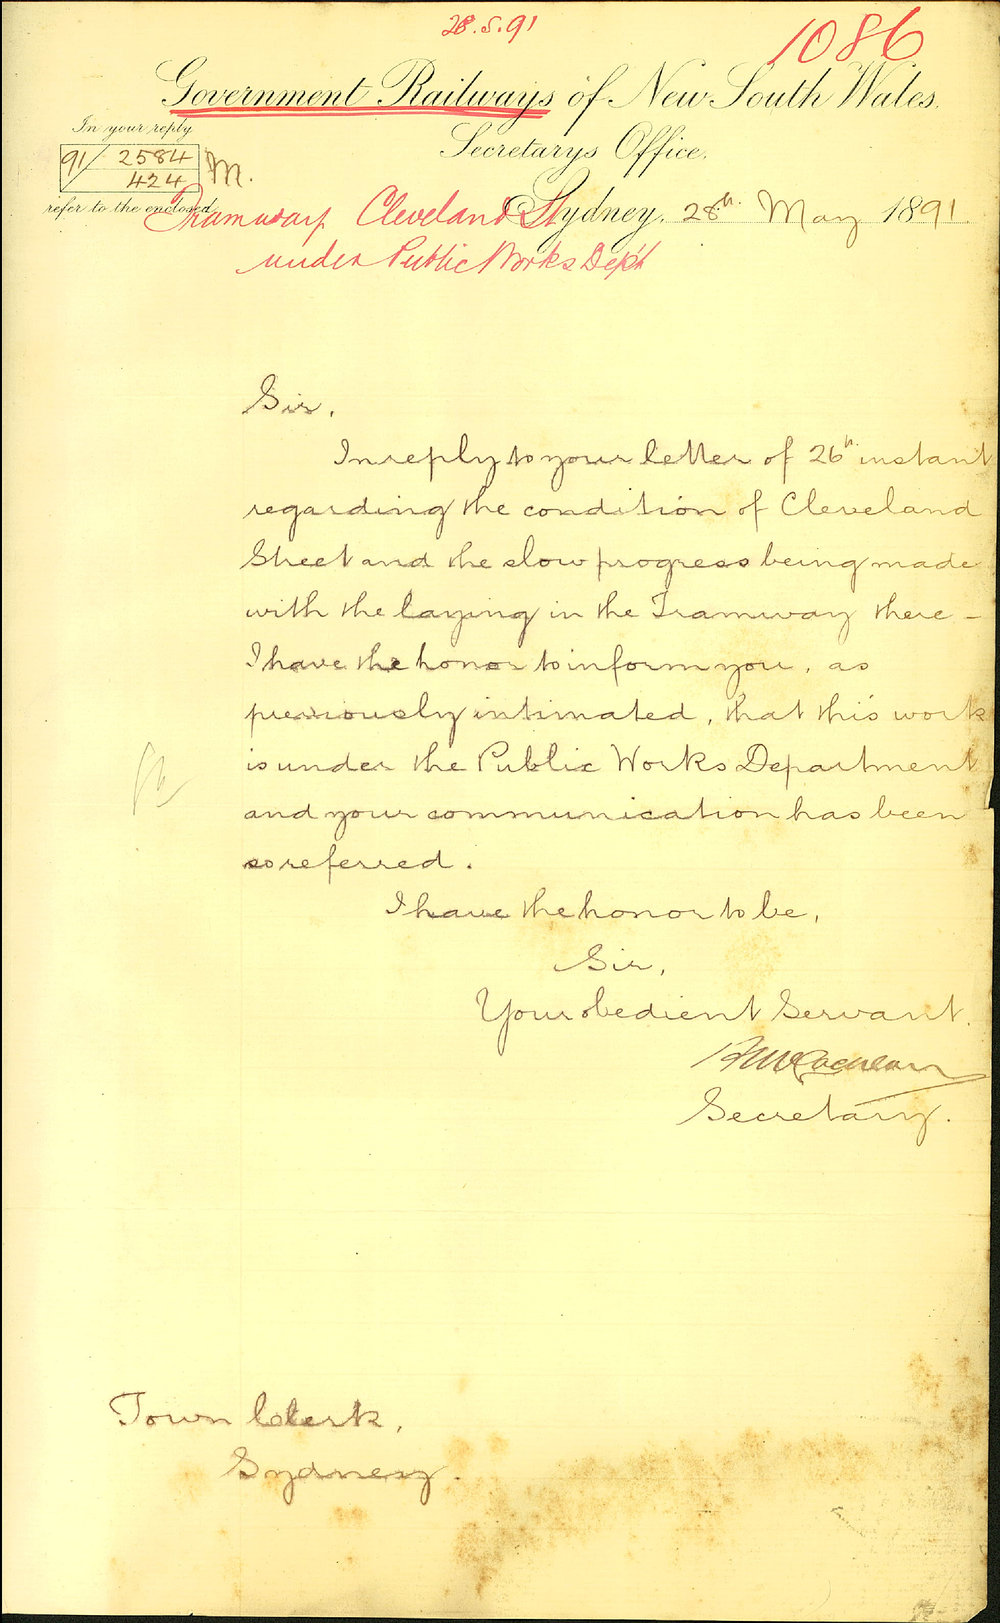 28.5.91
1086
Government Railways of New South Wales.
Secretarys Office.
In your reply
91/ 2584 M.
424
refer to the enclosed
Sydney. 28th. May 1891.
Tramway Cleveland St
under Public Works Dept
Sir,
In reply to your letter of 26h. instant
regarding the condition of Cleveland
Street and the slow progress being made
with the laying in the Tramway there –
I have the honor to inform you, as
previously intimated, that this work
is under the Public Works Department
and your communication has been
so referred.
I have the honor to be,
Sir,
Your obedient Servant.
Secretary.
Town Clerk,
Sydney.